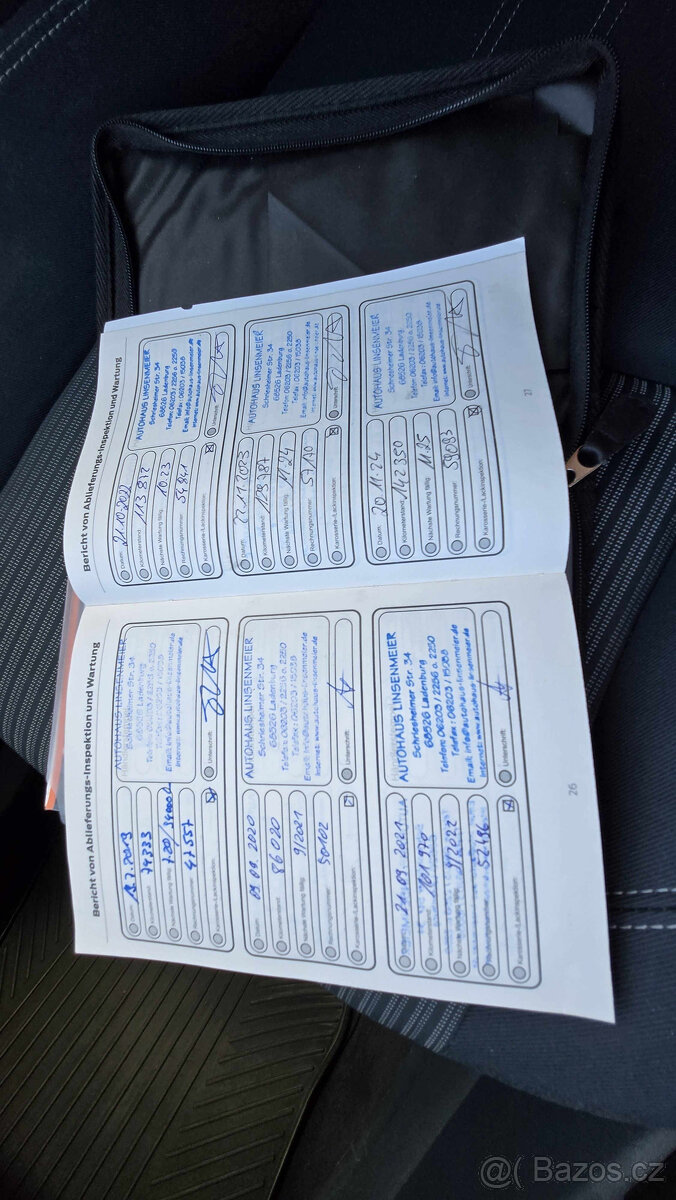 Bericht von Ablieferungs-Inspektion und Wartung
Datum: 18.7.2019
Kilometerstand: 74333
Nächste Wartung fällig:
Rechnungsnummer: 47557
Karosserie-/Lackinspektion:
AUTOHAUS LINSENMEIER
Schriesheimer Str. 34
68526 Ladenburg
Telefon: 06203 / 2256 o. 2250
Telefax: 06203 / 15038
Email: info@autohaus-linsenmeier.de
Internet: www.autohaus-linsenmeier.de
Unterschrift:
Datum: 09.09.2020
Kilometerstand: 86020
Nächste Wartung fällig: 9/2021
Rechnungsnummer: 50102
Karosserie-/Lackinspektion:
AUTOHAUS LINSENMEIER
Schriesheimer Str. 34
68526 Ladenburg
Telefon: 06203 / 2256 o. 2250
Telefax: 06203 / 15038
Email: info@autohaus-linsenmeier.de
Internet: www.autohaus-linsenmeier.de
Unterschrift:
Datum: 21.09.2021
Kilometerstand: 101970
Nächste Wartung fällig: 9/2022
Rechnungsnummer: 52496
Karosserie-/Lackinspektion:
AUTOHAUS LINSENMEIER
Schriesheimer Str. 34
68526 Ladenburg
Telefon: 06203 / 2256 o. 2250
Telefax: 06203 / 15038
Email: info@autohaus-linsenmeier.de
Internet: www.autohaus-linsenmeier.de
Unterschrift:
26
Bericht von Ablieferungs-Inspektion und Wartung
Datum: 21.10.2022
Kilometerstand: 113812
Nächste Wartung fällig: 10.23
Rechnungsnummer: 54841
Karosserie-/Lackinspektion:
AUTOHAUS LINSENMEIER
Schriesheimer Str. 34
68526 Ladenburg
Telefon: 06203 / 2256 o. 2250
Telefax: 06203 / 15038
Email: info@autohaus-linsenmeier.de
Internet: www.autohaus-linsenmeier.de
Unterschrift:
Datum: 22.11.2023
Kilometerstand: 128787
Nächste Wartung fällig: 11.24
Rechnungsnummer: 57110
Karosserie-/Lackinspektion:
AUTOHAUS LINSENMEIER
Schriesheimer Str. 34
68526 Ladenburg
Telefon: 06203 / 2256 o. 2250
Telefax: 06203 / 15038
Email: info@autohaus-linsenmeier.de
Internet: www.autohaus-linsenmeier.de
Unterschrift:
Datum: 20.11.24
Kilometerstand: 142350
Nächste Wartung fällig: 11.25
Rechnungsnummer: 59083
Karosserie-/Lackinspektion:
AUTOHAUS LINSENMEIER
Schriesheimer Str. 34
68526 Ladenburg
Telefon: 06203 / 2256 o. 2250
Telefax: 06203 / 15038
Email: info@autohaus-linsenmeier.de
Internet: www.autohaus-linsenmeier.de
Unterschrift:
27
@( Bazos.cz